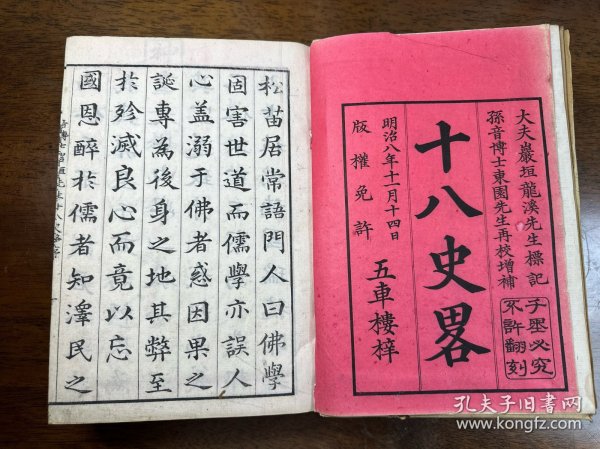 大夫巖垣龍溪先生標記
孫音博士東園先生再校增補
子墨必究
不許翻刻
十八史畧
五車樓梓
明治八年十一月十四日
版權免許
松苗居常語門人曰佛學
固害世道而儒學亦誤人
心盖溺于佛者惑因果之
誕專為後身之地其弊至
於殄滅良心而竟以忘
國恩醉於儒者知澤民之
孔夫子旧书网
www.kongfz.com